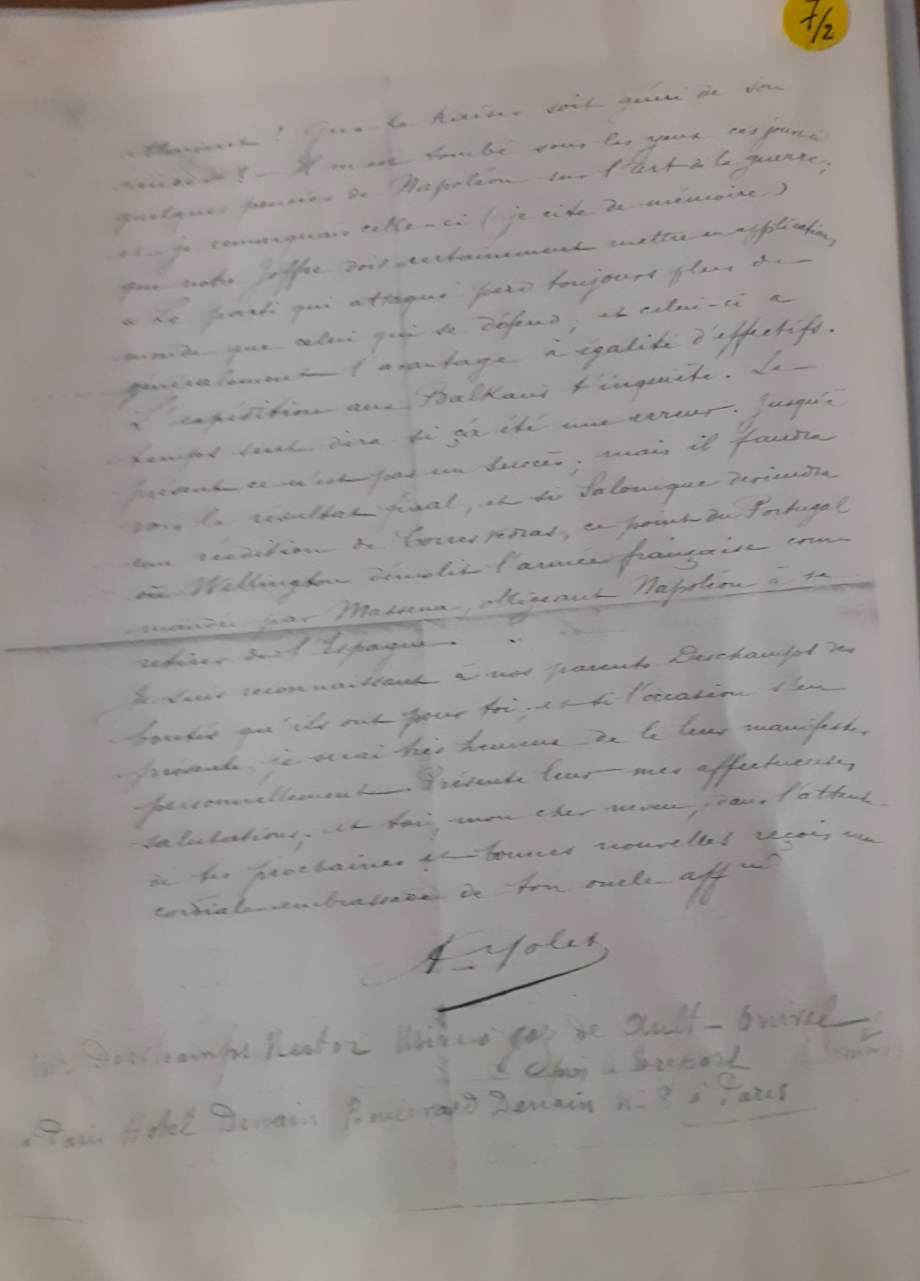 7/2
! Que le Kaiser soit guéri de son
! — Il m'est tombé sous les yeux ces jours
quelques pensées de Napoléon sur l'art de la guerre,
et je remarquais celle-ci (je cite de mémoire)
que notre Joffre doit certainement mettre en application,
« Le parti qui attaque perd toujours plus de
monde que celui qui se défend ; et celui-ci a
généralement l'avantage à égalité d'effectifs.
L'expédition aux Balkans t'inquiète. Le
temps seul dira si ça été une erreur. Jusqu'à
présent ce n'est pas un succès ; mais il faudra
voir le résultat final, et si Salonique deviendra
une réédition de Torres Vedras, ce point du Portugal
où Wellington démolit l'armée française com
mandée par Massena, obligeant Napoléon à se
retirer de l'Espagne.
Je suis reconnaissant à nos parents Deschamps des
bontés qu'ils ont pour toi ; et si l'occasion s'en
présente, je serai très heureux de le leur manifester
personnellement. Présente leur mes affectueuses
salutations, et toi, mon cher neveu, dans l'attente
de tes prochaines et bonnes nouvelles reçois une
cordiale embrassade de ton oncle aff né
Mr Deschamps Nestor gaz de Ault - Onival
à Paris Hotel Denain Boulevard Denain à Paris